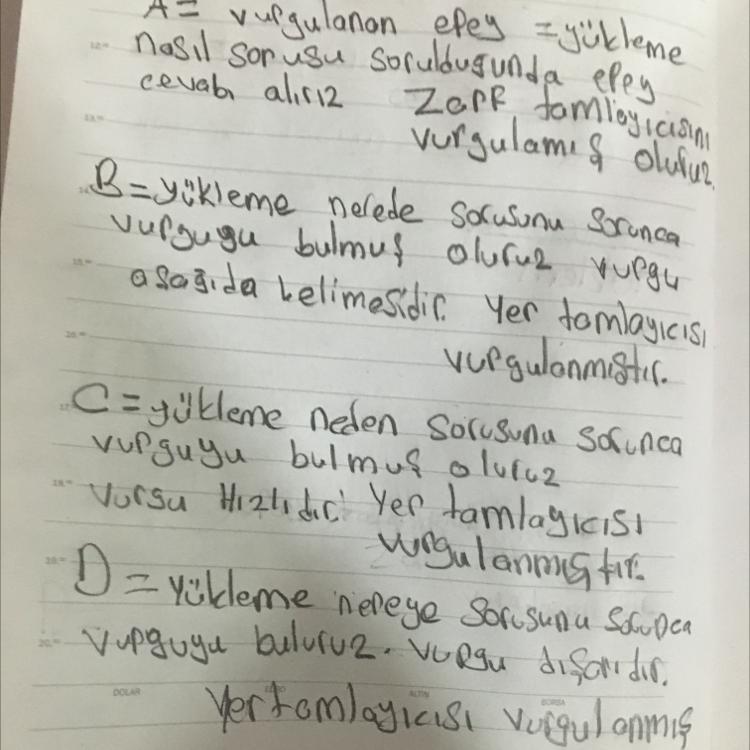 A = vurgulanan epey = yükleme
nasıl sorusu sorulduğunda epey
cevabı alırız Zarf tamlayıcısını
vurgulamış oluruz.
B = yükleme nerede sorusunu sorunca
vurgugu bulmuş oluruz vurgu
aşağıda kelimesidir. Yer tamlayıcısı
vurgulanmıştır.
C = yükleme neden sorusunu sorunca
vurguyu bulmuş oluruz
vursu Hızlıdır. Yer tamlayıcısı
vurgulanmıştır.
D = yükleme nereye sorusunu sorunca
vurguyu buluruz. vurgu dışarıdır.
DOLAR ALTIN BORSA
Yer tamlayıcısı vurgulanmış